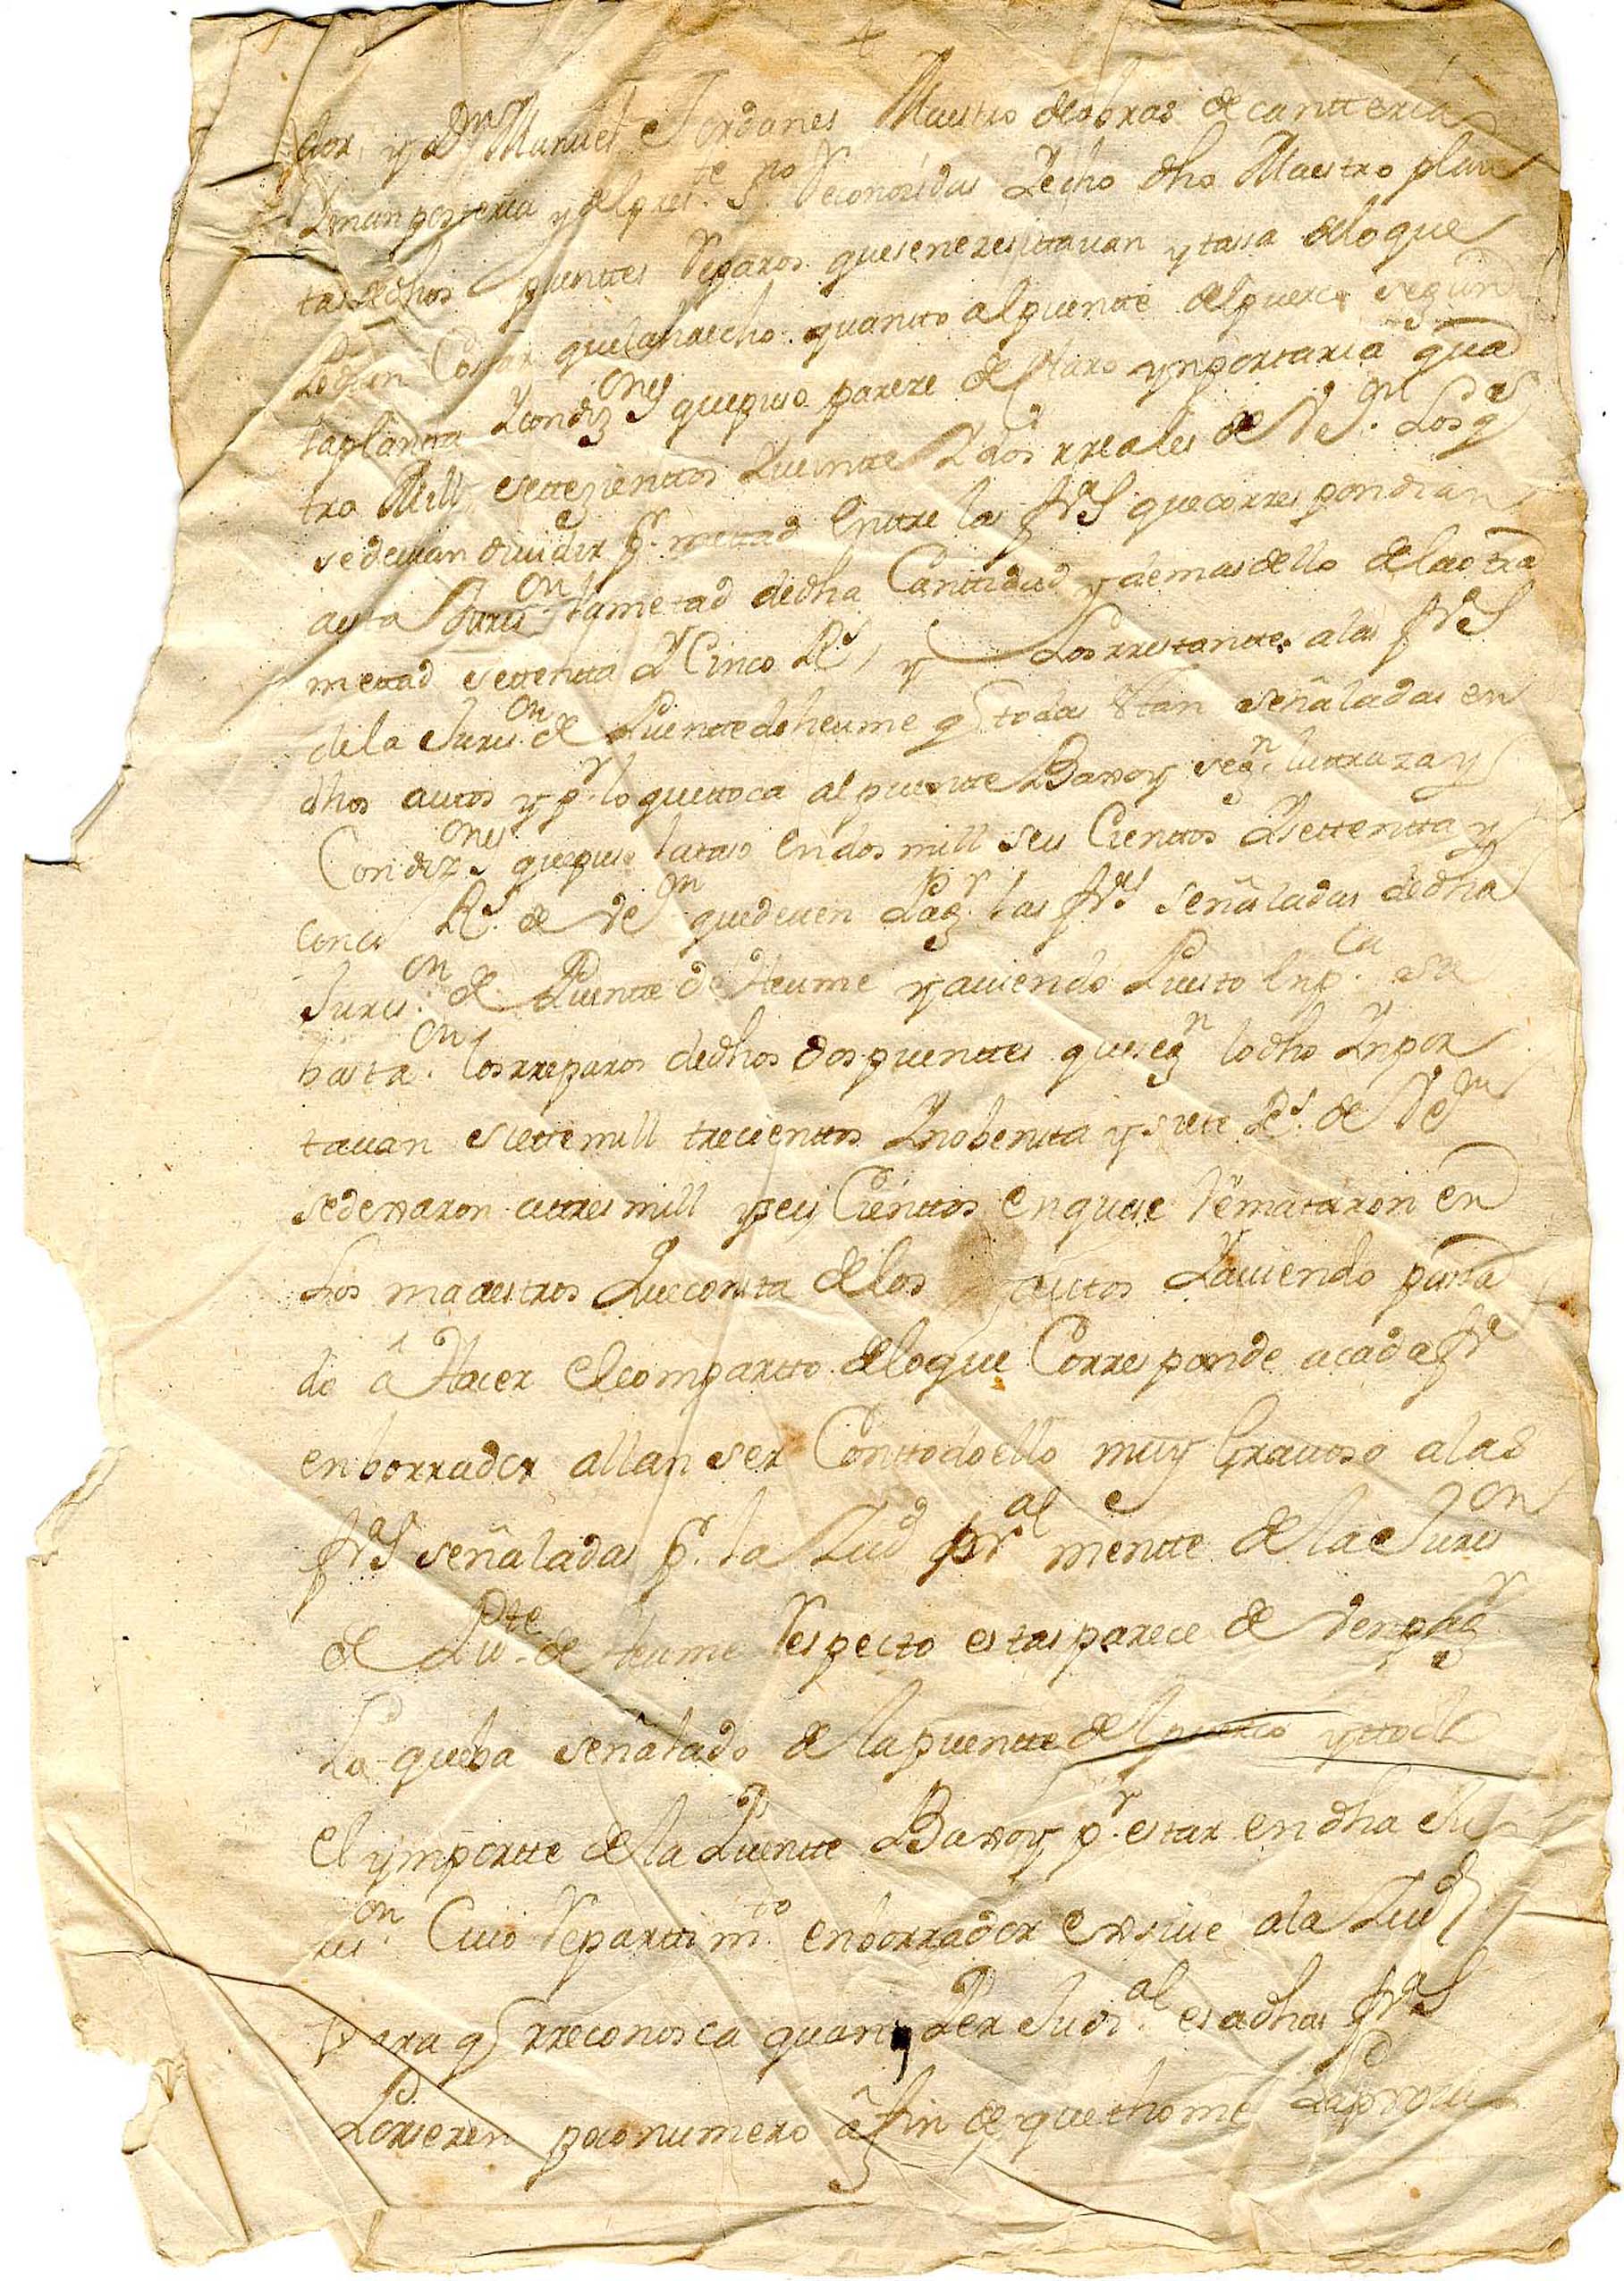 dor, y a Dn Manuel Jordanes Maestro de obras de cantteria
Y manposteria y del pres.te s.no Reconosidas Y echo dho Maestro plan
tas de dhos puenttes Reparos que se nezesittauan y tassa de lo que
Podian Costar que la ha echo quanto al puentte del puerco segun
la plantta Y condiz.ones que puso parere declaro ynportaria qua
tro Mill settezienttos Y ueintte Y dos rreales de Ve.on Los q.s
se deuian diuidir p.r mettad Enttre las frs.s que correspondian
a esta Juris.on la metad de dha Canttidad y demas dello de la otra
mettad settentta Y Cinco R.s y Los rrestanttes a las fr.as
de la Juris.on de Puentte de heume q.e todas Estan señaladas en
dhos auttos y p.r lo que ttoca al puentte Baxoy seg.n la ttraza y
Condiz.ones que puso la taso En dos mill seis Cienttos Y settentta y
cinco R.s de Ve.on que deuen Pag.r las fr.as señaladas de dha
Juris.on de Puentte de Heume y auiendo Puesto En p.ca su
basta.on los rreparos de dhos dos puenttes que seg.n lo dho Ynpor
tauan siette mill trecienttos Y nobentta y siete R.s de Ve.on
se dexaron a ttres mill y seis Cienttos en que se Remataron en
Los maestros Que consta de los auttos Y auiendo passa
do â Hacer El compartto de lo que Corresponde a cada fr.a
en borrador allan ser Con ttodo ello muy Grauoso a las
fr.as señaladas p.r la Ziud pr.al mentte de la Juris.on
de Pu.te de heume Respecto estas parece deVen pag.r
Lo que ba señalado de la puentte del puerco y ttodo
el ymportte de la Puentte Baxoy p.r estar en dha Ju
ris.on Cuio Reparttim.to en borrador Exsiue a la Ziud
Para q.e rreconosca quan Per Judi.al es a dhas fr.as
Por seren poco numero â fin de que thome La proui